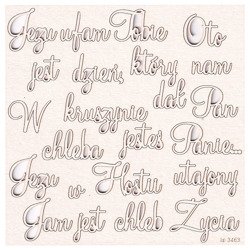 Jezu ufam Tobie Oto
jest dzień, który nam
dał Pan
W kruszynie
chleba jesteś Panie...
Jezu w Hostii utajony
Jam jest chleb Życia
Lp 3463